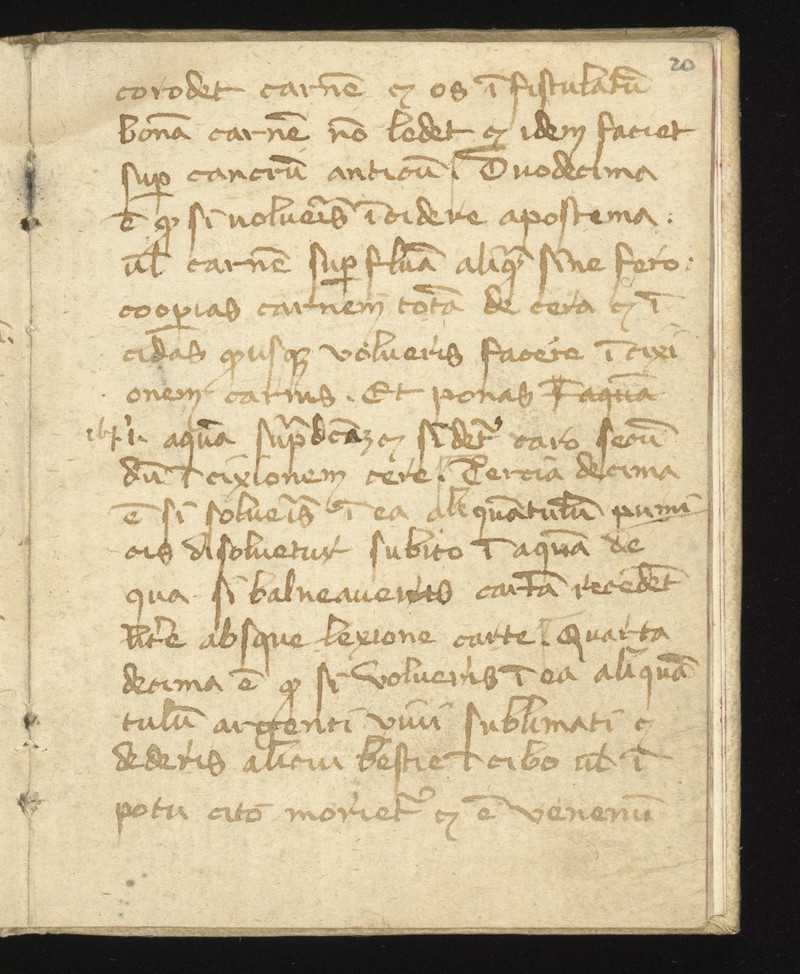 20
corodet carnē ⁊ os ī fistulatū
bonā carnē nō ledet ⁊ idem faciet
suꝑ cancrū anticū. Duodecima
ē ꝙ si uolueris īcidere apostema:
ul carnē suꝑfluā aliq̄ sine fero:
cooꝑias carnem totā de cera ⁊ ī
cidas usqꝫ volueris facere īcixi
onem carnis. Et ponas ī aquā
aquā sup̄dcāꝫ ⁊ sīdet᷑ caro secū
dū īcixionem cere. Tercia decima
ē si solueris ī ea aliquātulū pumi
cis disoluetur subito ī aquā de
qua si balneaueris cartā recedēt
lr̄e absque lexione carte. Quarta
decima ē ꝙ si volueris ī ea aliquā
tulū argenti viui sublimati ⁊
dederis alicui bestie ī cibo ul ī
potu cito moriet᷑ ⁊ ē venenū